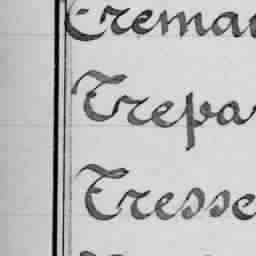 Trema
Trepa
Tresse